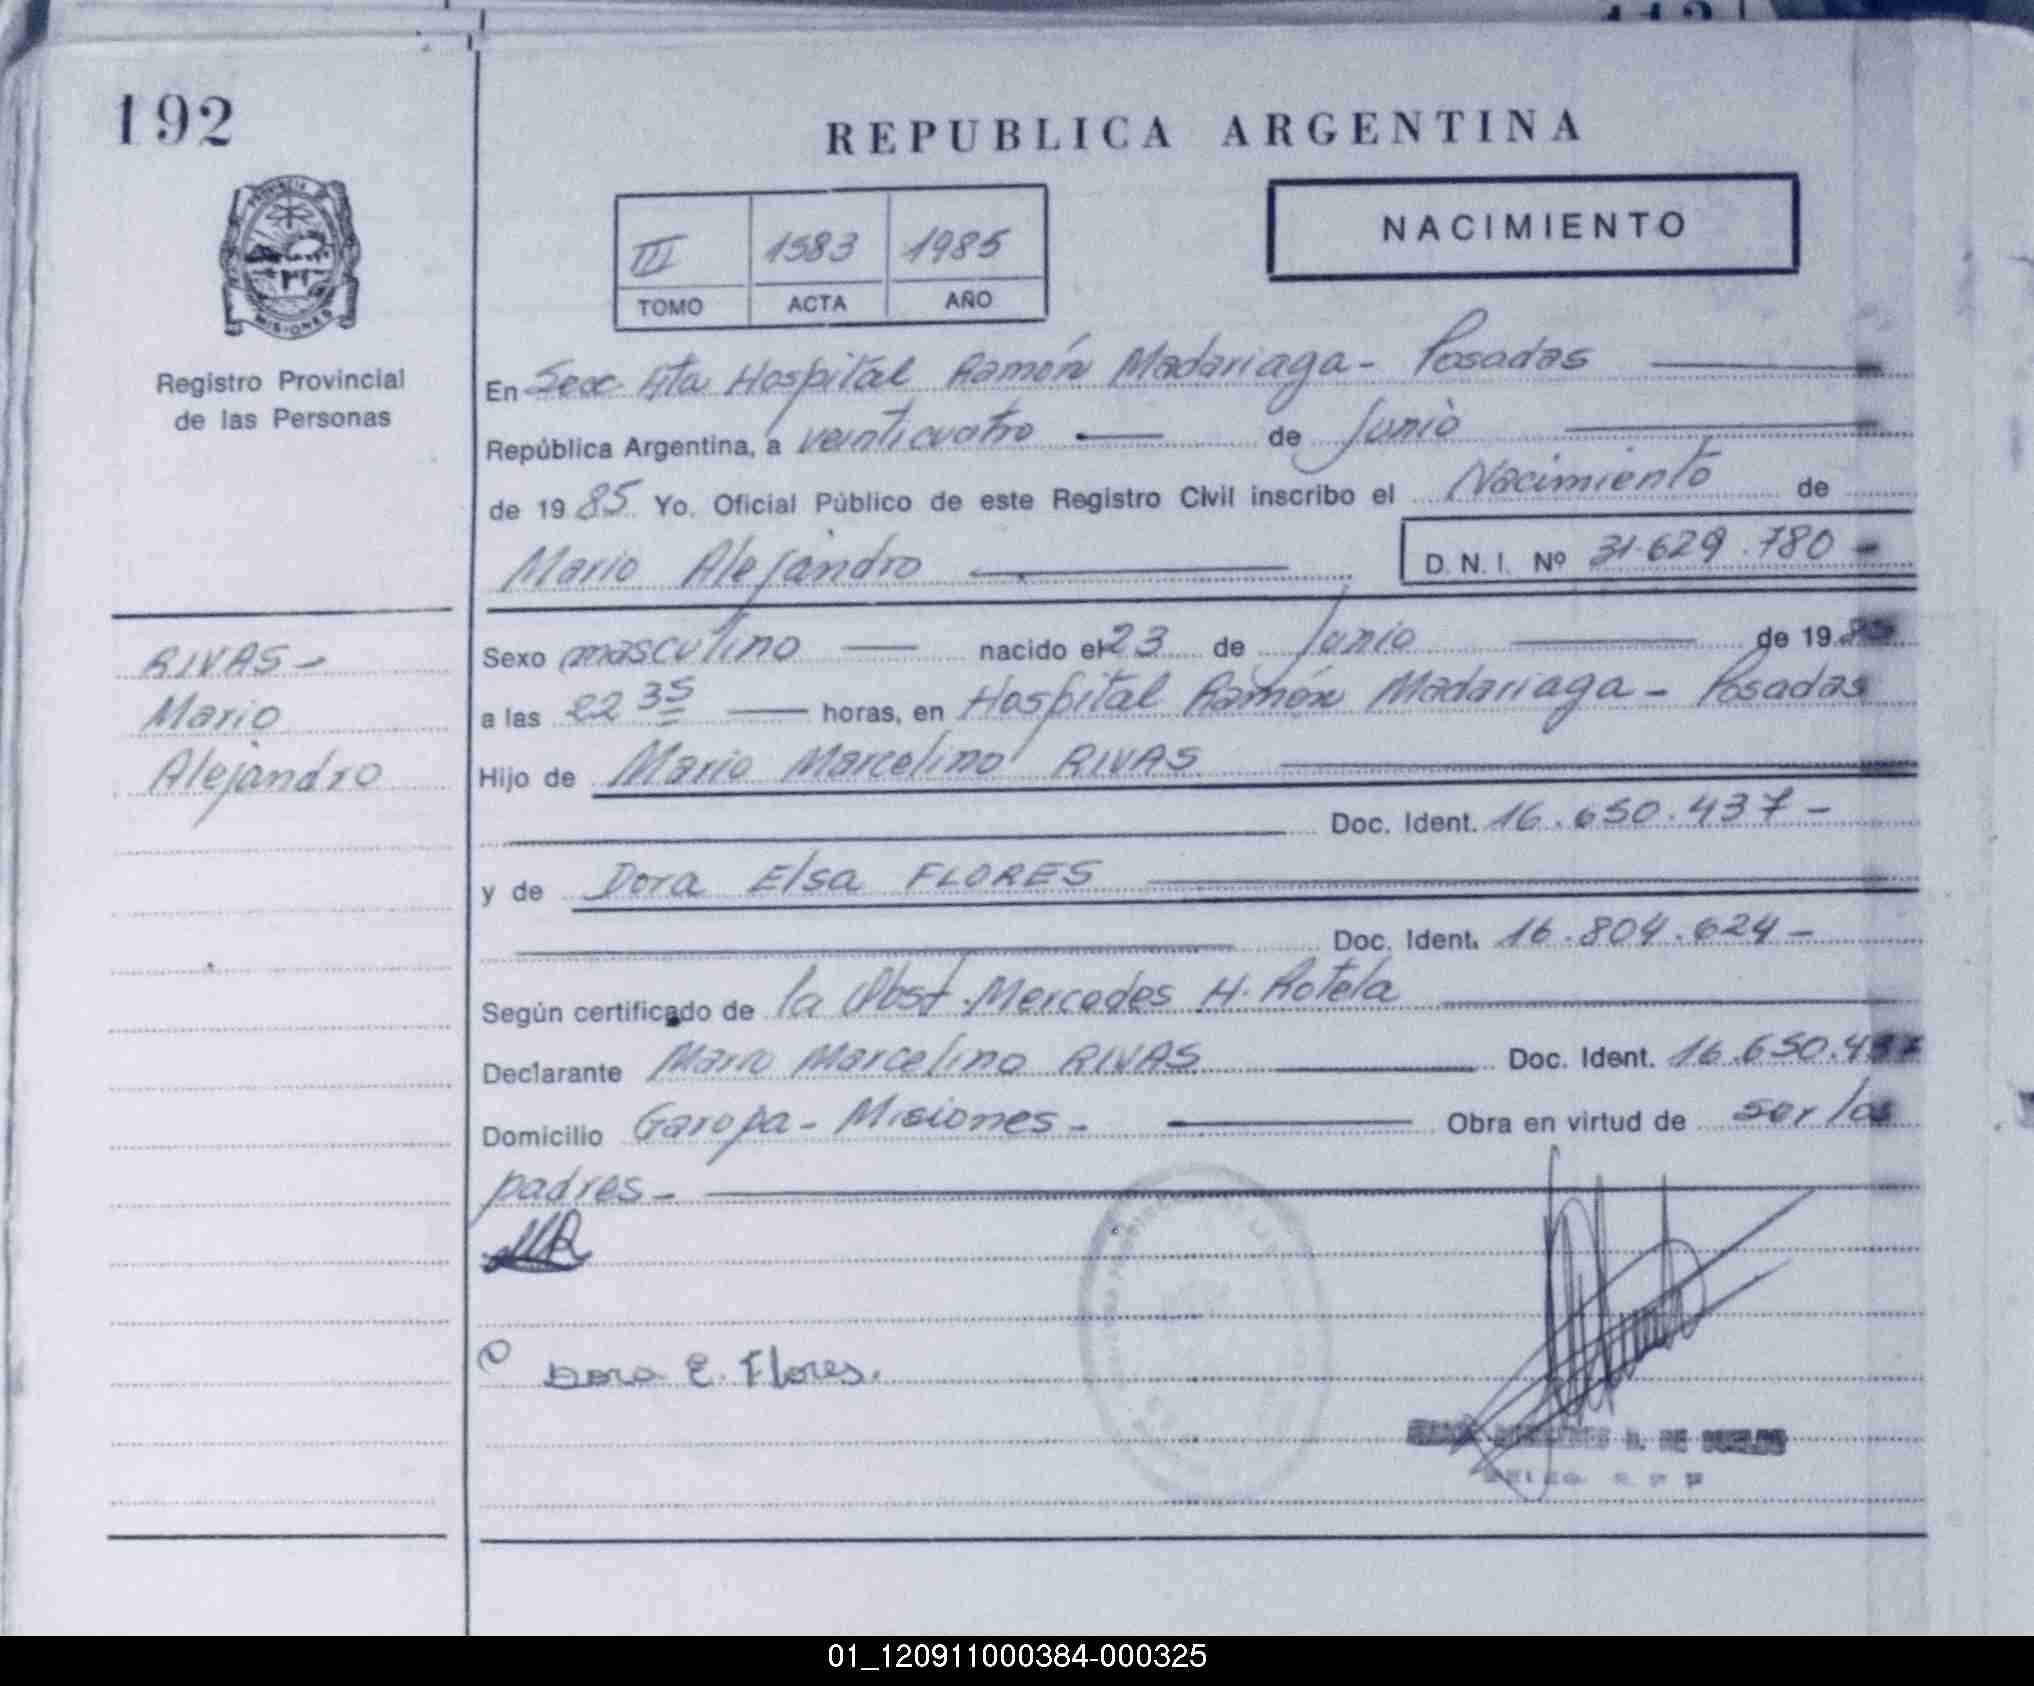 192
REPUBLICA ARGENTINA
PROVINCIA
MISIONES
Registro Provincial
de las Personas
III 1583 1985
TOMO ACTA AÑO
NACIMIENTO
En Secc. 4ta Hospital Ramón Madariaga - Posadas
República Argentina, a veinticuatro de Junio
de 1985 Yo, Oficial Público de este Registro Civil inscribo el Nacimiento de
Mario Alejandro D. N. I. Nº 31.629.780 -
RIVAS -
Mario
Alejandro
Sexo masculino nacido el 23 de Junio de 1985
a las 22 35 horas, en Hospital Ramón Madariaga - Posadas
Hijo de Mario Marcelino RIVAS
Doc. Ident. 16.650.437 -
y de Dora Elsa FLORES
Doc. Ident. 16.804.624 -
Según certificado de la Obst. Mercedes H. Rotela
Declarante Mario Marcelino RIVAS Doc. Ident. 16.650.437
Domicilio Garopa - Misiones - Obra en virtud de ser los
padres -
MR
Dora E. Flores.
01_120911000384-000325